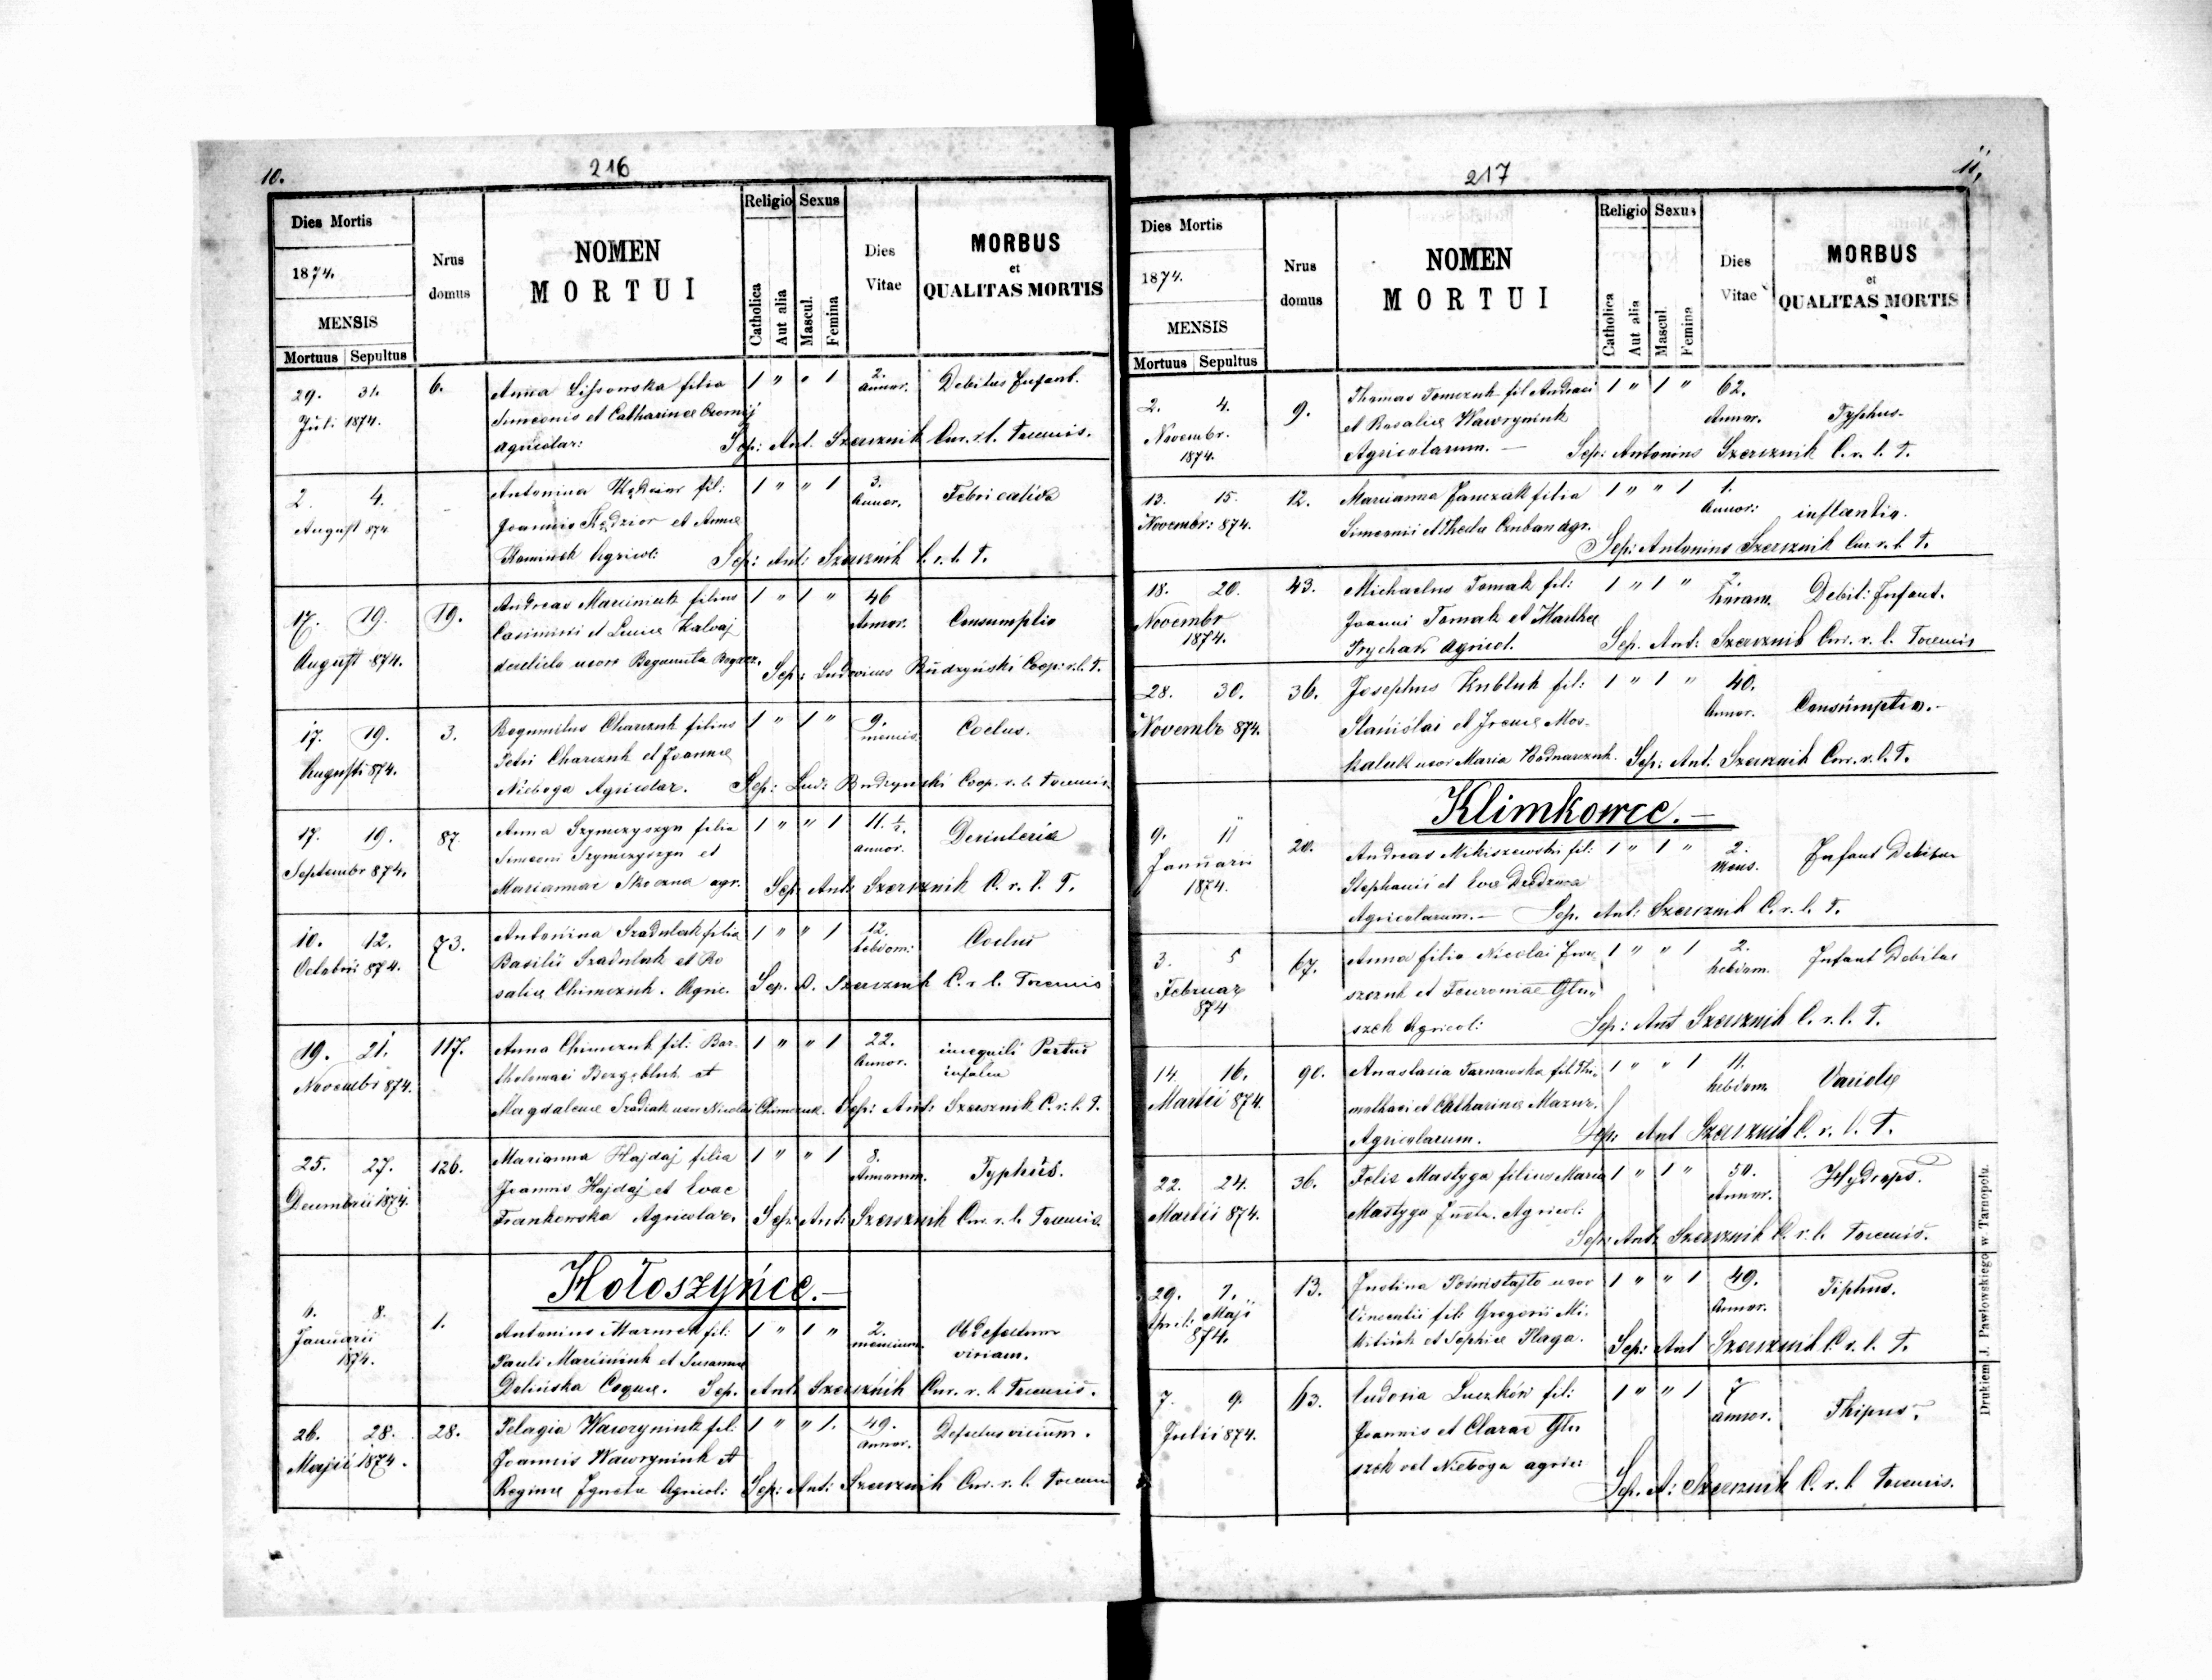 10.
216
Dies Mortis
1874.
MENSIS
Mortuus Sepultus
Nrus domus
NOMEN
MORTUI
Religio Sexus
Catholica
Aut alia
Mascul.
Femina
Dies
Vitae
MORBUS
et
QUALITAS MORTIS
29. 31. 6. Anna Lissowska filia 1 " " 1 2. Annor. Debitus Infant.
Juli 1874. Simeonis et Catharinae
Agricolar: Sep: Ant. Szersznik Cur. r. l. Tocensis.
2. 4. Antonina Kędzior fil: 1 " " 1 3. Annor. Febri calida
August 874 Joannis Kędzior et Annae
Kaminsk Agricol: Sep: Ant: Szersznik C. r. l. T.
17. 19. 19. Andreas Marciniuk filius 1 " 1 " 46 Annor. Consumptio
August 874. Casimiri et Luciae Kalvaj
derelicto uxore Bogumila Bogacz. Sep: Ludovicus Budzyński Coop: r. l. T.
17. 19. 3. Bogumilus Charczuk filius 1 " 1 " 9. mensis Coelus.
Augusti 874. Petri Charczuk et Joannae
Nieboga Agricolar. Sep: Lud: Budzyński Coop. r. l. Tocensis.
17. 19. 87. Anna Szymczyszyn filia 1 " " 1 11. ½. annor. Desinteria
Septembr 874. Simeoni Szymczyszyn et
Mariannae Skoczna agr. Sep. Ant: Szersznik C. r. l. T.
10. 12. 73. Antonina Szadulak filia 1 " " 1 12. hebdom: Coelus
Octobrii 874. Basilii Szadulak et Ro
saliae Chimczuk. Agric. Sep. A. Szersznik C. r. l. Tocensis
19. 21. 117. Anna Chimczuk fil: Bar 1 " " 1 22. Annor. Partus
Novembr 874. tholomaei et
Magdalenae Szadiak uxor Nicolai Chimczuk. Sep: Ant: Szersznik C. r. l. T.
25. 27. 126. Marianna Hajdaj filia 1 " " 1 8. Annorum. Typhus.
Decembrii 1874. Joannis Hajdaj et Evae
Frankowska Agricolar. Sep. Ant: Szersznik Cur. r. l. Tocensis.
Hołoszyńce.—
8. 1. Antonius Mazurek fil: 1 " 1 " 2. mensium. Ob defectum
Januarii 1874. Pauli Marciniuk et Susannae viriam.
Dolińska Coquae. Sep. Ant: Szersznik Cur. r. l. Tocensis.
26. 28. 28. Pelagia Wawryniuk fil: 1 " " 1. 49. Annor. Defectus virium.
Majii 1874. Joannis Wawryniuk et
Reginae Ignota Agricol: Sep: Ant: Szersznik Cur. r. l. Tocensi
217
11.
Dies Mortis
1874.
MENSIS
Mortuus Sepultus
Nrus domus
NOMEN
MORTUI
Religio Sexus
Catholica
Aut alia
Mascul.
Femina
Dies
Vitae
MORBUS
et
QUALITAS MORTIS
2. 4. 9. Thomas Tomczuk fil Andreae 1 " 1 " 62. Annor. Typhus.
Novembr. et Rosaliae Wawryniuk
1874. Agricolarum.— Sep: Antonius Szersznik C. r. l. T.
13. 15. 12. Marianna Janczak filia 1 " " 1 1. Annor: inflantia.
Novembr: 874. Simeonii et Thecla Czuban Agr.
Sep: Antonius Szersznik Cur. r. l. T.
18. 20. 43. Michaelus Tomak fil: 1 " 1 " 2. horam. Debit: Infant.
Novembr Joanni Tomak et Marthae
1874. Prychar Agricol. Sep. Ant: Szersznik Cur. r. l. Tocensis
28. 30. 36. Josephus Kubluk fil: 1 " 1 " 40. Annor. Consumptio.—
Novembr 874. Stanislai et Irenae Mos-
kaluk uxor Maria Bodnarczuk. Sep: Ant: Szersznik Cur. r. l. T.
Klimkowce.—
9. 11 20. Andreas Mikiszewski fil: 1 " 1 " 2. Mens. Infant Debitas
Januarii Stephanii et Evae
1874. Agricolarum.— Sep. Ant: Szersznik C. r. l. T.
3. 5 67. Anna filia Nicolai Iwa 1 " " 1 2. hebdom. Infant Debitas
Februar szczuk et Feuroniae Glu„
874 szek Agricol: Sep: Ant Szersznik C. r. l. T.
14. 16. 90. Anastasia Tarnawska fil. Thi„ 1 " " 1 11. hebdom Variolis
Martii 874. mothaei et Catharinae Mazur.
Agricolarum. Sep: Ant Szersznik C. r. l. T.
22. 24. 36. Felix Mastyga filius Maria 1 " 1 " 50. Annor. Hydrops.
Martii 874. Mastyga Agricol:
Sep: Ant: Szersznik C. r. l. Tocensis.
29. 1. 13. Justina uxor 1 " " 1 49. Annor. Tiphus.
April: Maji Vincentii fil: Gregorii Mi„
874. et Sophiae Plaga. Sep: Ant Szersznik C. r. l. T.
7. 9. 63. Eudosia Luczków fil: 1 " " 1 7 annor. Thipus.
Julii 874. Joannis et Clarae Glu
szek vel Nieboga agric:
Sep. A: Szersznik C. r. l. Tocensis.
Drukiem J. Pawłowskiego w Tarnopolu.